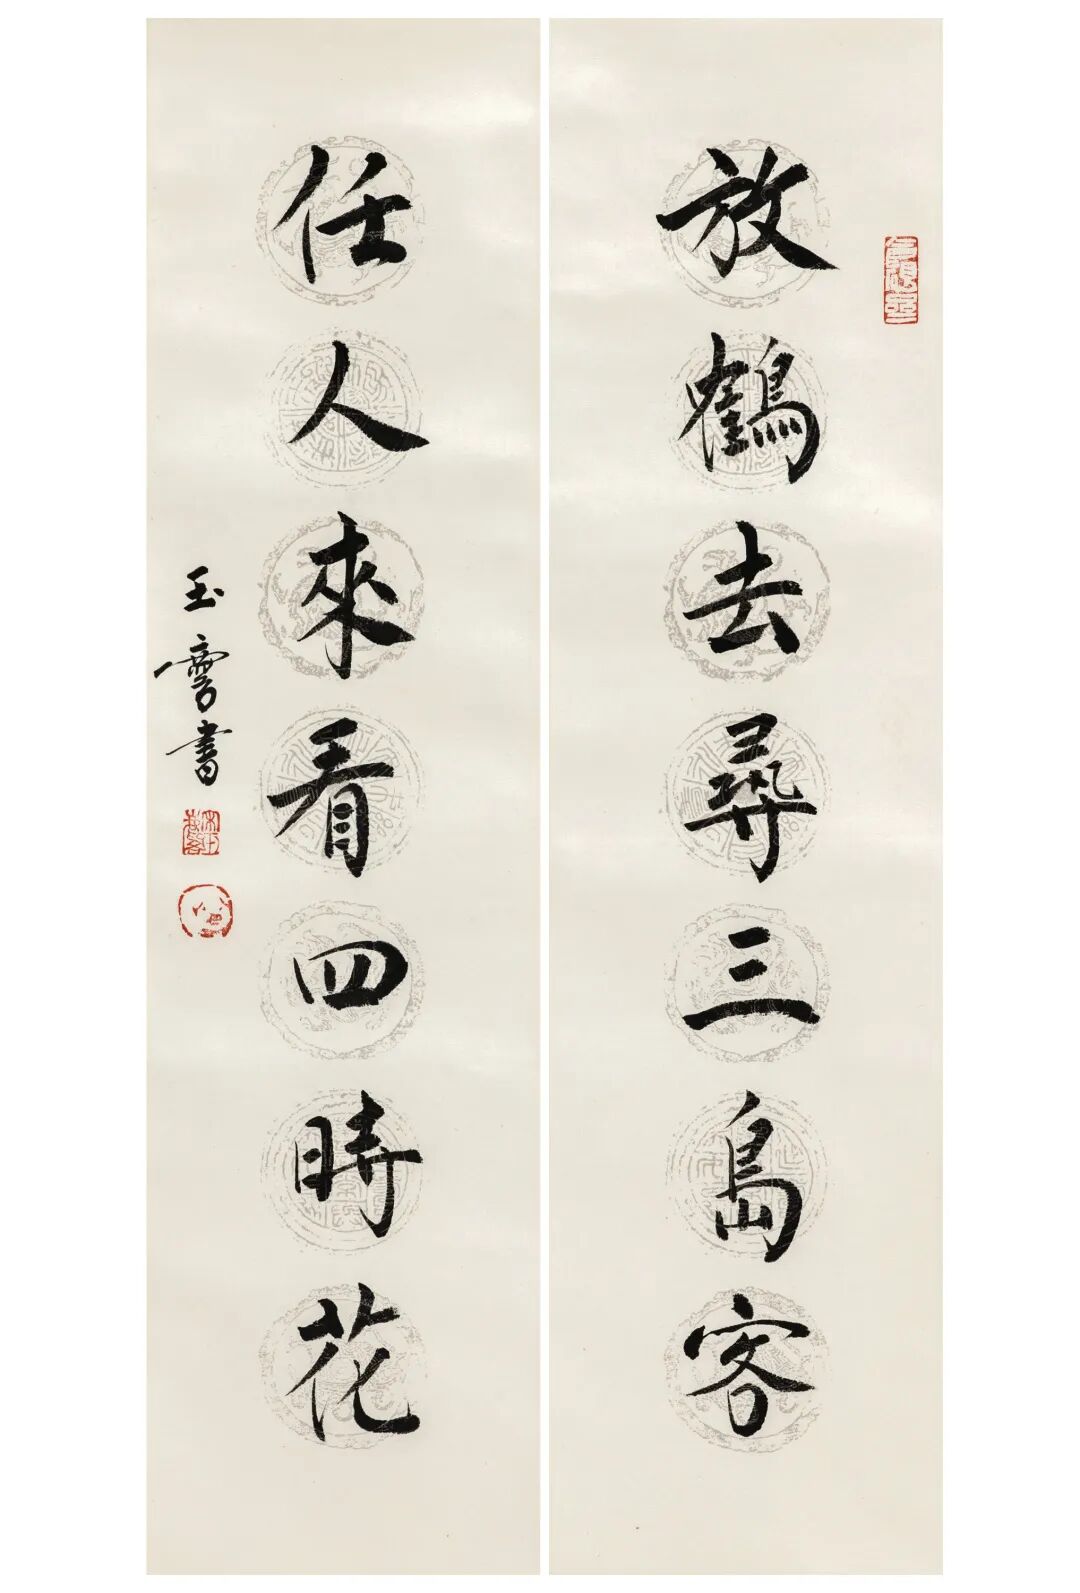 放鶴去尋三島客
任人來看四時花
玉霄書